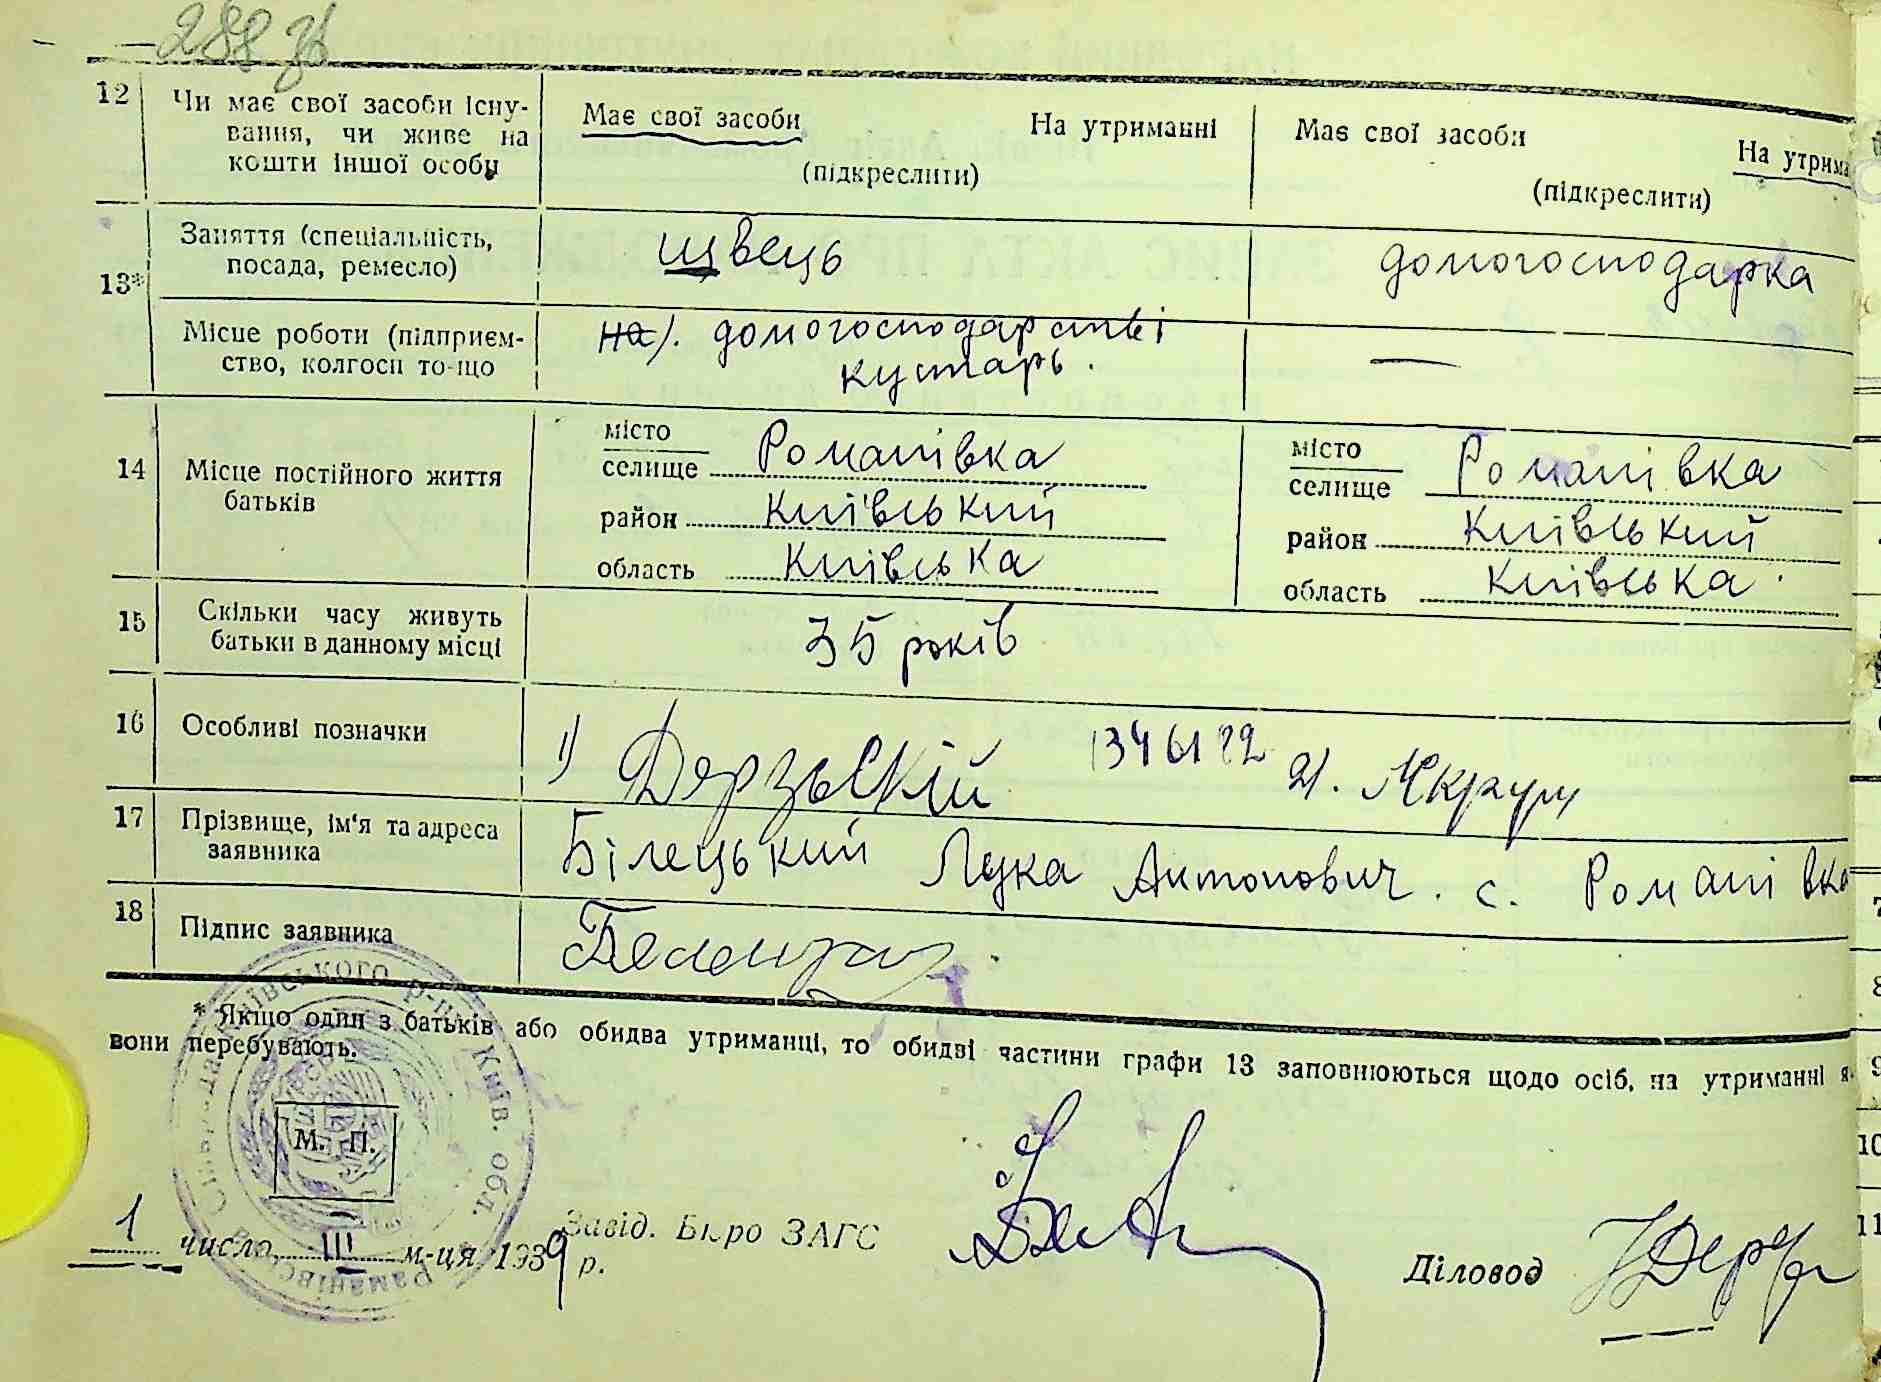 288 зв
12 Чи має свої засоби існу-
вання, чи живе на
кошти іншої особи
Має свої засоби На утриманні
(підкреслити)
Має свої засоби На утрима
(підкреслити)
13*
Заняття (спеціальність,
посада, ремесло)
щвець
домогосподарка
Місце роботи (підприєм-
ство, колгосп то-що
на). домогосподарстві
кустарь.
—
14 Місце постійного життя
батьків
місто
селище Романівка
район Київський
область Київська
місто
селище Романівка
район Київський
область Київська.
15 Скільки часу живуть
батьки в данному місці
35 років
16 Особливі позначки
1) Дерзьскій 1346122 2).
17 Прізвище, ім'я та адреса
заявника
Білецький Лука Антонович. с. Романівка
18 Підпис заявника
* Якщо один з батьків або обидва утриманці, то обидві частини графи 13 заповнюються щодо осіб, на утриманні я
вони перебувають.
М. П.
1 число III м-ця 1939 р.
Завід. Бюро ЗАГС
Діловод
Романівська Сільрада Київського р-ну Київ. обл.
7
8
9
10
11